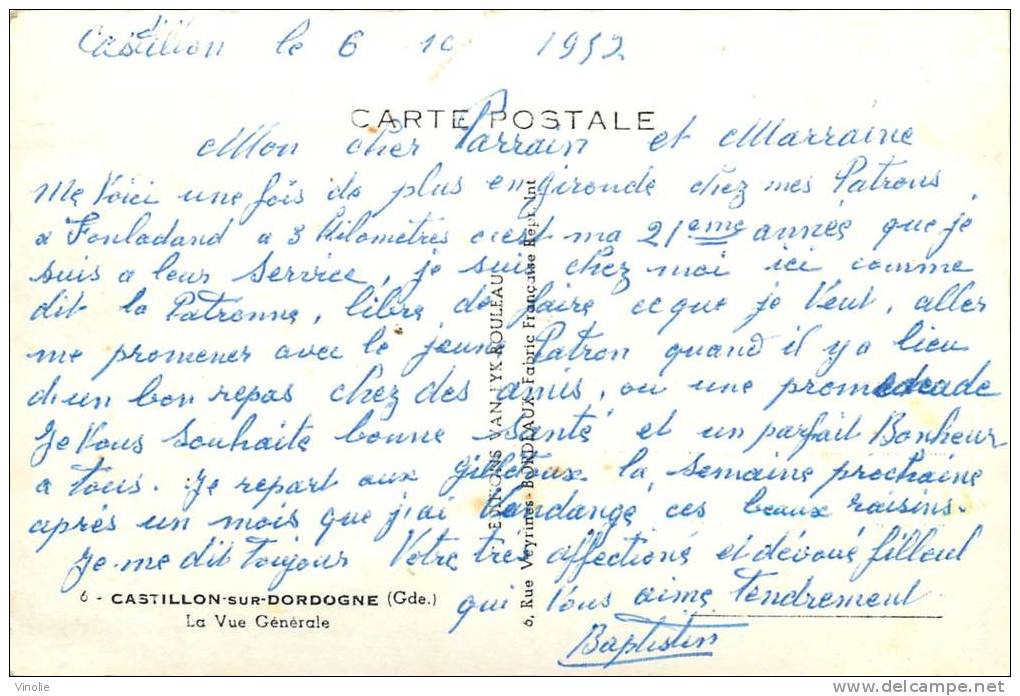 Castillon le 6 10 1952
CARTE POSTALE
Mon cher Parrain et Marraine
Me Voici une fois de plus en gironde chez mes Patrons
a Fonladand a 3 Kilometres c'est ma 21eme année que je
suis a leur service, je suis chez moi ici comme
dit la Patronne, libre de faire ce que je veut, aller
me promener avec le jeune Patron quand il y a lieu
d'un bon repas chez des amis, ou une promenade
Je Vous souhaite bonne santé et un parfait Bonheur
a tous. Je repart aux la semaine prochaine
après un mois que j'ai Vendangé ces beaux raisins.
Je me dit toujour Votre très affectioné et dévoué filleul
qui Vous aime Tendrement
Baptistin
6 - CASTILLON-SUR-DORDOGNE (Gde.)
La Vue Générale
EDITIONS VAN EYK-ROULEAU
6, Rue Veyrines - BORDEAUX - Fabric Française Rept. Int
Vinolie
delcampe.net